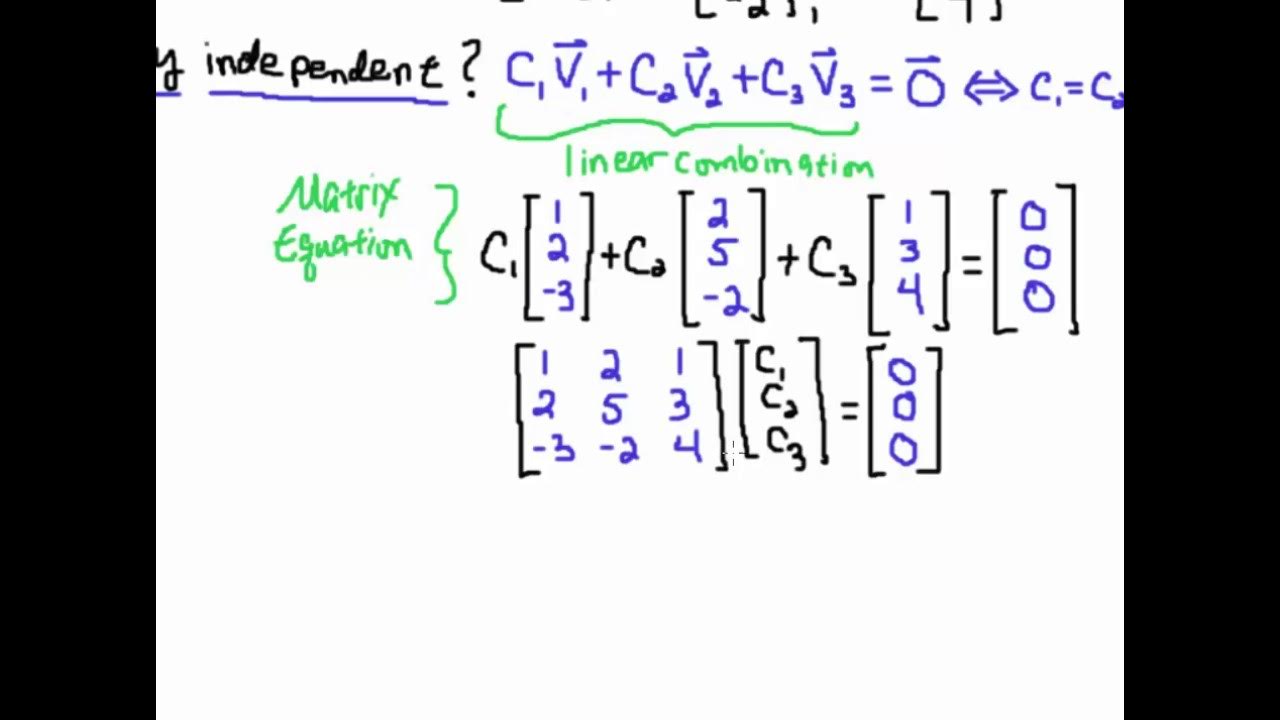 [-2], [4]
y independent? C₁V⃗₁ + C₂V⃗₂ + C₃V⃗₃ = 0⃗ ⇔ C₁ = C₂
linear combination
Matrix
Equation
C₁ [1 2 -3] + C₂ [2 5 -2] + C₃ [1 3 4] = [0 0 0]
[1 2 1] [C₁] = [0]
[2 5 3] [C₂] [0]
[-3 -2 4] [C₃] [0]